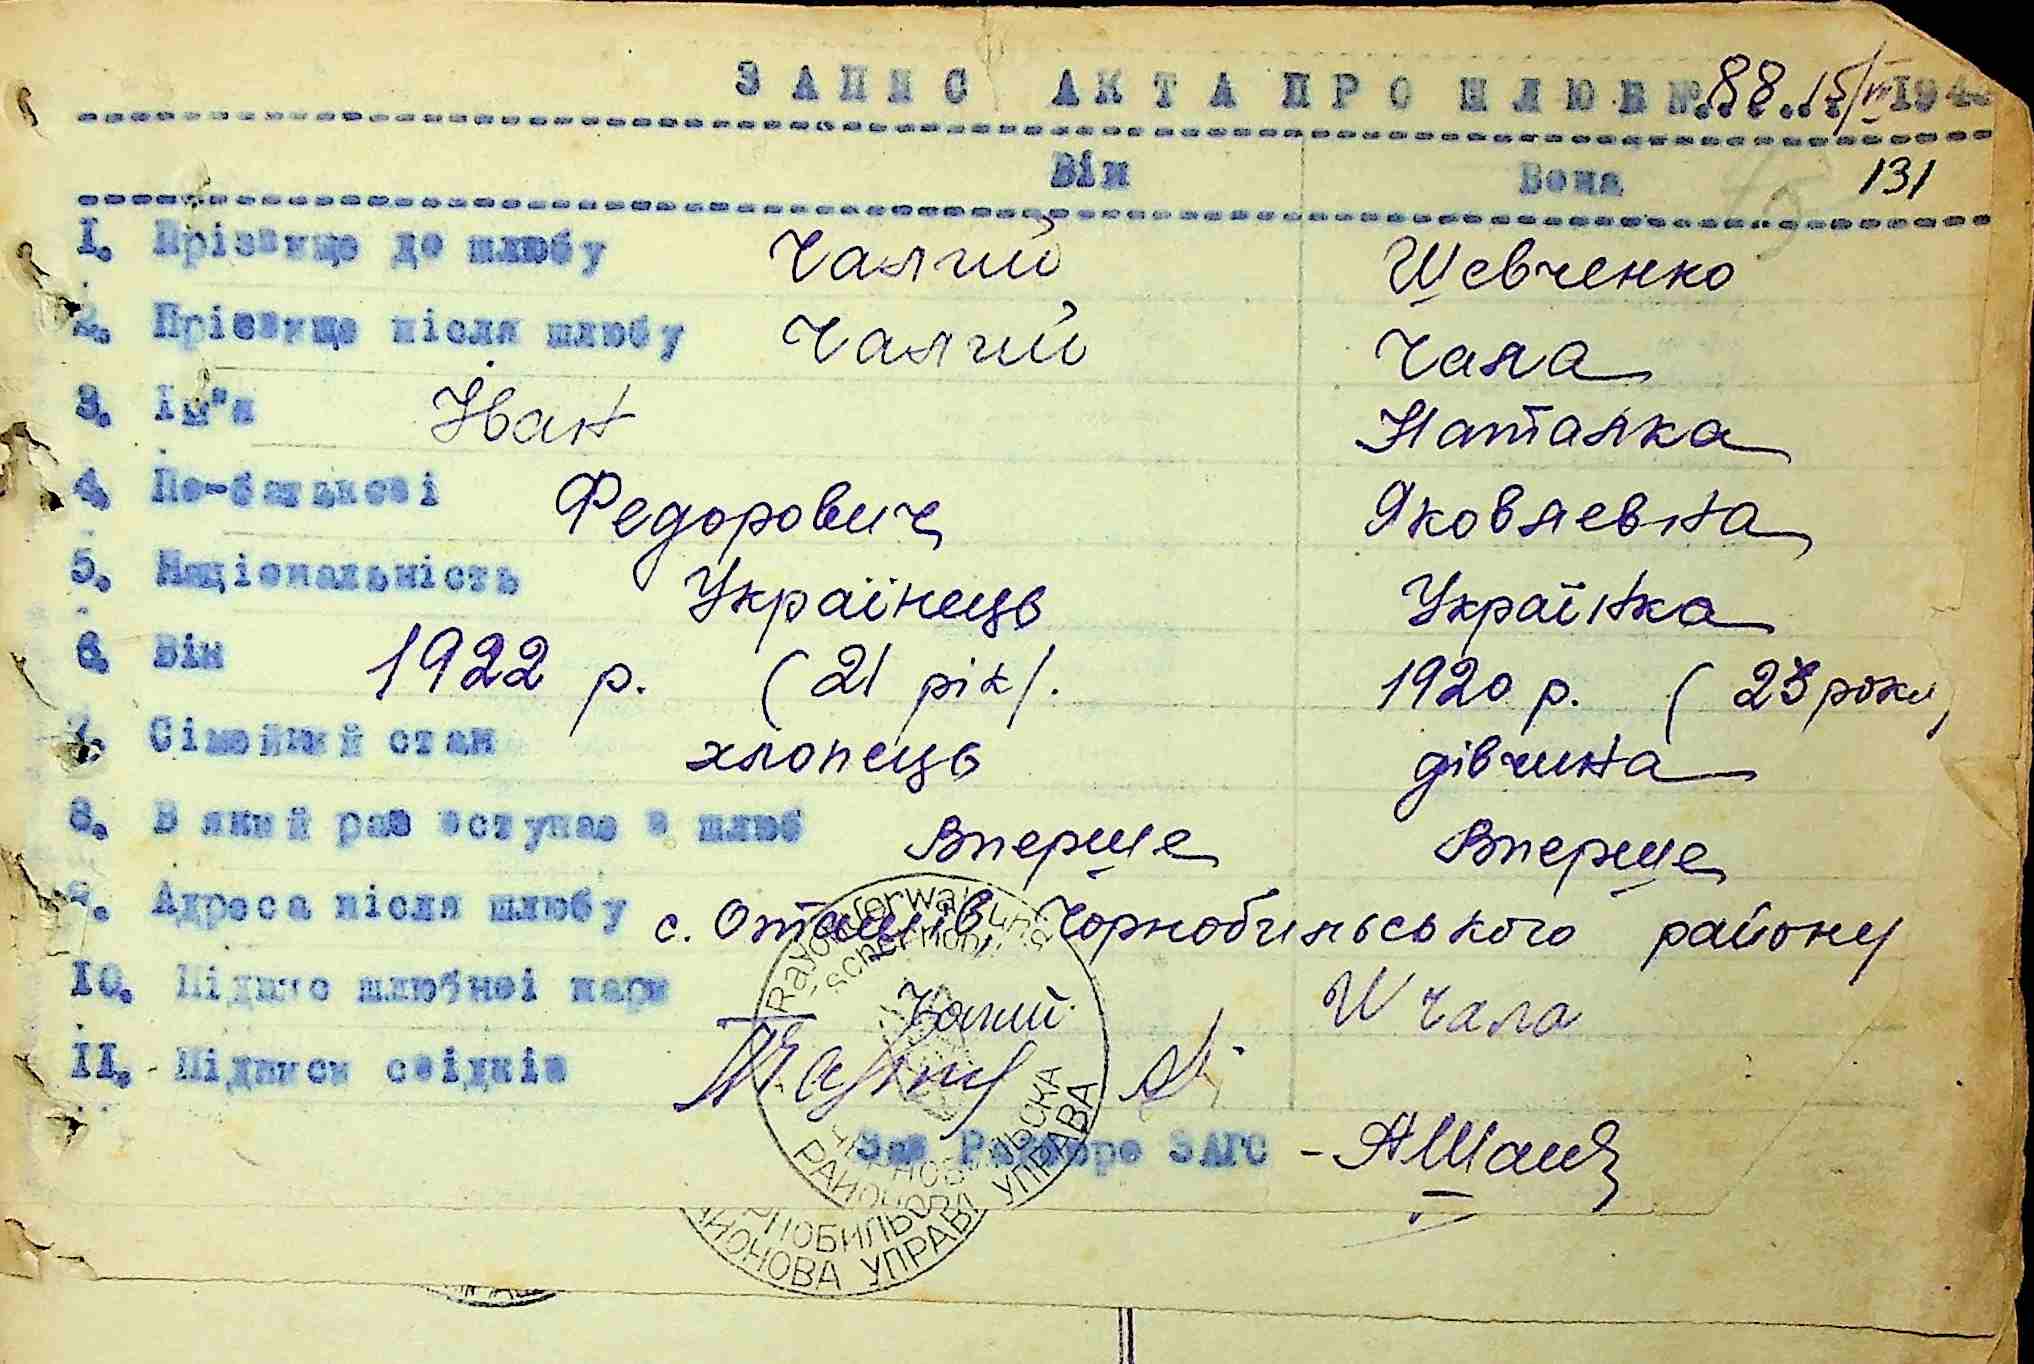 ЗАПИС АКТА ПРО ШЛЮБ № 88. 15/VI 194
Він Вона 131
1. Прізвище до шлюбу Чалий Шевченко
2. Прізвище після шлюбу Чалий Чала
3. Ім'я Іван Наталка
4. По-батькові Федорович Яковлевна
5. Національність Українець Українка
6. Вік 1922 р. (21 рік). 1920 р. (23 роки)
7. Сімейний стан хлопець дівчина
8. В який раз вступає в шлюб Вперше Вперше
9. Адреса після шлюбу с. Оташів Чорнобильського району
10. Підпис шлюбної пари Чалий Ш Чала
11. Підписи свідків
Зав Райбюро ЗАГС -
РАЙОНОВА УПРАВА
НОБИЛЬС
ЙОНОВА УПРАВА